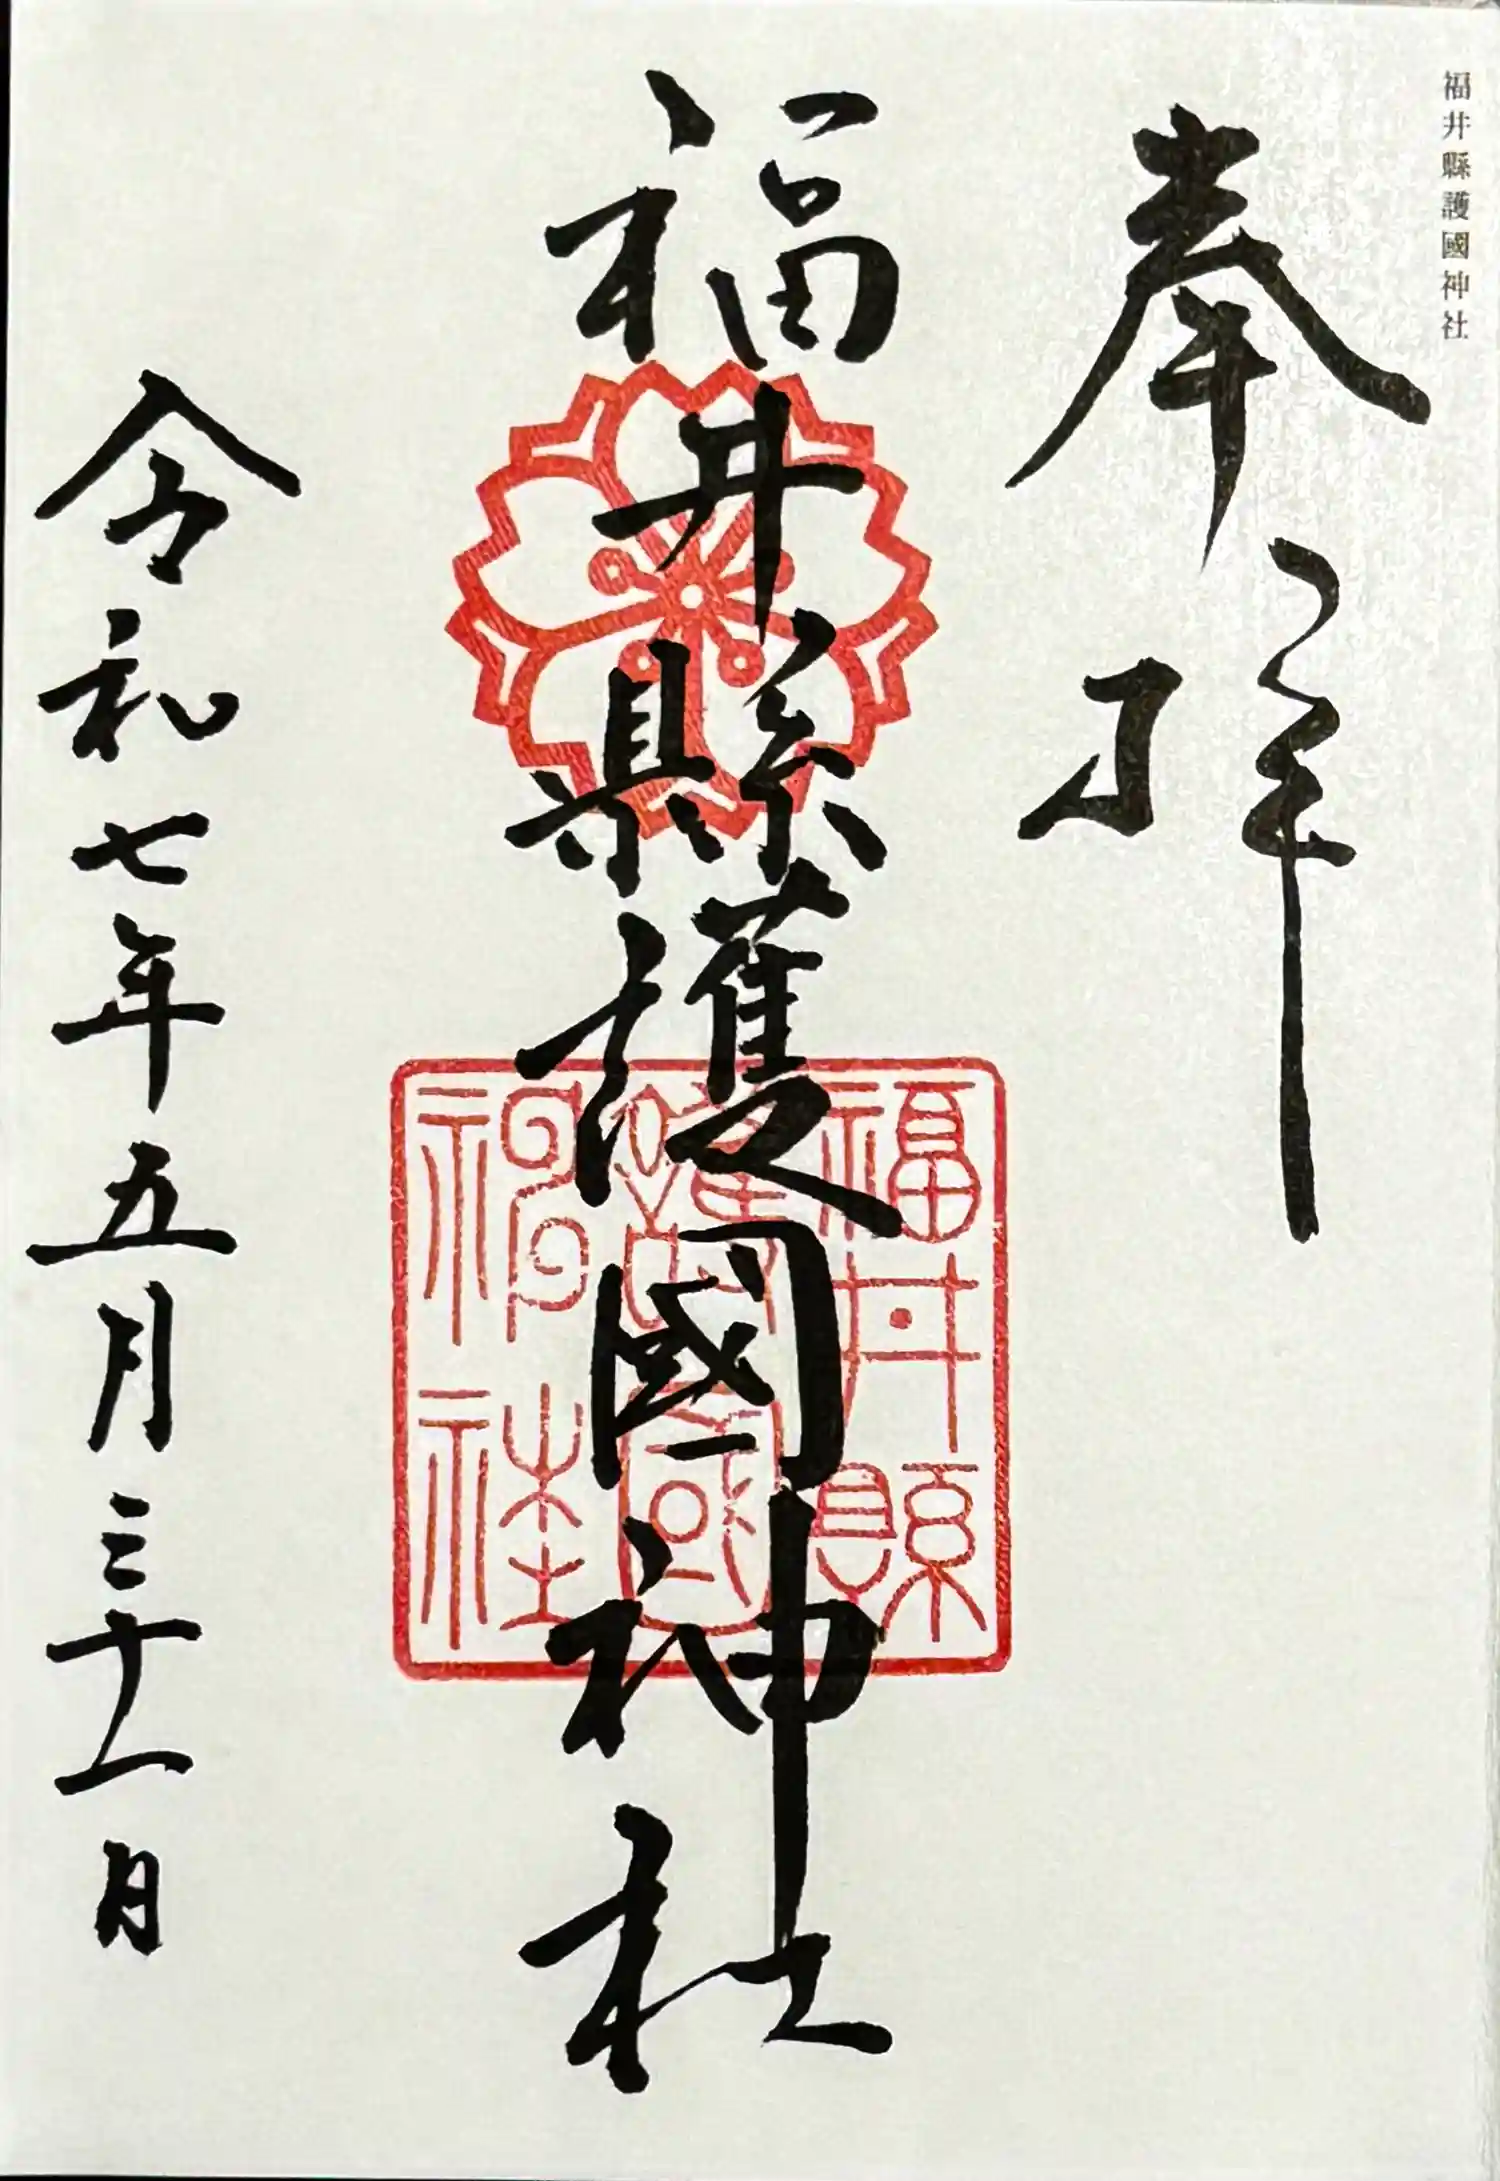 福井縣護國神社
奉拝
福井縣護國神社
福井縣
護國
神社
令和七年五月三十一日